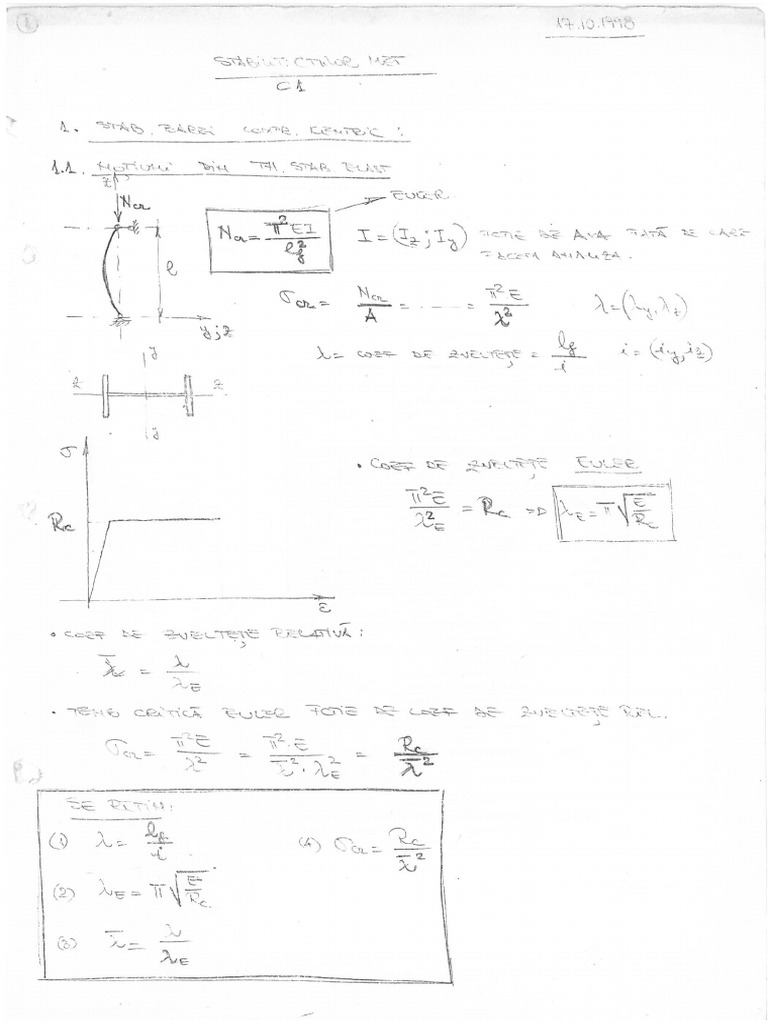 1
17.10.1998
STABILIT. CTIILOR MET
C1
1. STAB. BAREI COMPR. CENTRIC :
1.1. NOTIUNI DIN TH. STAB. ELAST
z
N_cr
EULER
N_cr = π²EI / l_f²
I = (I_z ; I_y) FCTIE DE AXA FATĂ DE CARE
FACEM ANALIZA.
l
σ_cr = N_cr / A = ...... = π²E / λ²
λ = (λ_y, λ_z)
y;z
λ = COEF DE ZVELTEȚE = l_f / i
i = (i_y, i_z)
y
z z
y
σ
• COEF DE ZVELTEȚE EULER
π²E / λ_E² = R_c ⇒ λ_E = π √(E / R_c)
R_c
ε
• COEF DE ZVELTEȚE RELATIVĂ :
λ̄ = λ / λ_E
• TENS CRITICĂ EULER FCTIE DE COEF DE ZVELTEȚE REL.
σ_cr = π²E / λ² = π²·E / λ̄²·λ_E² = R_c / λ̄²
SE RETIN :
(1) λ = l_f / i
(4) σ_cr = R_c / λ̄²
(2) λ_E = π √(E / R_c)
(3) λ̄ = λ / λ_E